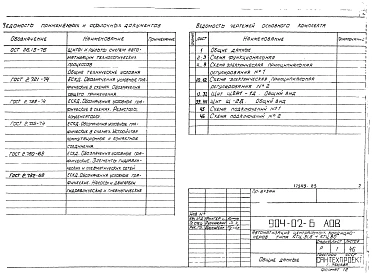 Ведомость примененных и ссылочных документов
Обозначение
Наименование
Примечание
ОСТ 36.13-76
Щиты и пульты систем авто-
матизации технологических
процессов
Общие технические условия
ГОСТ 2.721-74
ЕСКД. Обозначения условные гра-
фические в схемах. Обозначения
общего применения.
ГОСТ 2.728-74
ЕСКД. Обозначения условные гра-
фические в схемах. Резисторы,
конденсаторы
ГОСТ 2.755-74
ЕСКД. Обозначения условные гра-
фические в схемах. Устройства
коммутационные и контактные
соединения
ГОСТ 2.780-68
ЕСКД. Обозначения условные гра-
фические. Элементы гидравли-
ческих и пневматических сетей
ГОСТ 2.782-68
ЕСКД. Обозначения условные гра-
фические. Насосы и двигатели
гидравлические и пневматические
Ведомость чертежей основного комплекта
Лист
Наименование
Примечание
1
Общие данные
Схема функциональная
Схема электрическая принципиальная
регулирования № 1
Схема электрическая принципиальная
регулирования № 2
Общий вид
Общий вид
45
Схема подключений № 1
46
Схема подключений № 2
Привязан
904-02-Б АОВ
Р
1
46
Общие данные
САНТЕХПРОЕКТ